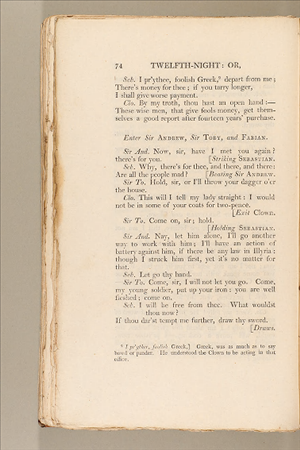 74 TWELFTH-NIGHT: OR,
Seb. I pr'ythee, foolish Greek,⁹ depart from me;
There's money for thee; if you tarry longer,
I shall give worse payment.
Clo. By my troth, thou hast an open hand:—
These wise men, that give fools money, get them-
selves a good report after fourteen years' purchase.
Enter Sir ANDREW, Sir TOBY, and FABIAN.
Sir And. Now, sir, have I met you again?
there's for you. [Striking SEBASTIAN.
Seb. Why, there's for thee, and there, and there:
Are all the people mad? [Beating Sir ANDREW.
Sir To. Hold, sir, or I'll throw your dagger o'er
the house.
Clo. This will I tell my lady straight: I would
not be in some of your coats for two-pence.
[Exit Clown.
Sir To. Come on, sir; hold.
[Holding SEBASTIAN.
Sir And. Nay, let him alone, I'll go another
way to work with him; I'll have an action of
battery against him, if there be any law in Illyria:
though I struck him first, yet it's no matter for
that.
Seb. Let go thy hand.
Sir To. Come, sir, I will not let you go. Come,
my young soldier, put up your iron: you are well
fleshed; come on.
Seb. I will be free from thee. What wouldst
thou now?
If thou dar'st tempt me further, draw thy sword.
[Draws.
⁹ I pr'ythee, foolish Greek,] Greek, was as much as to say
bawd or pander. He understood the Clown to be acting in that
office.